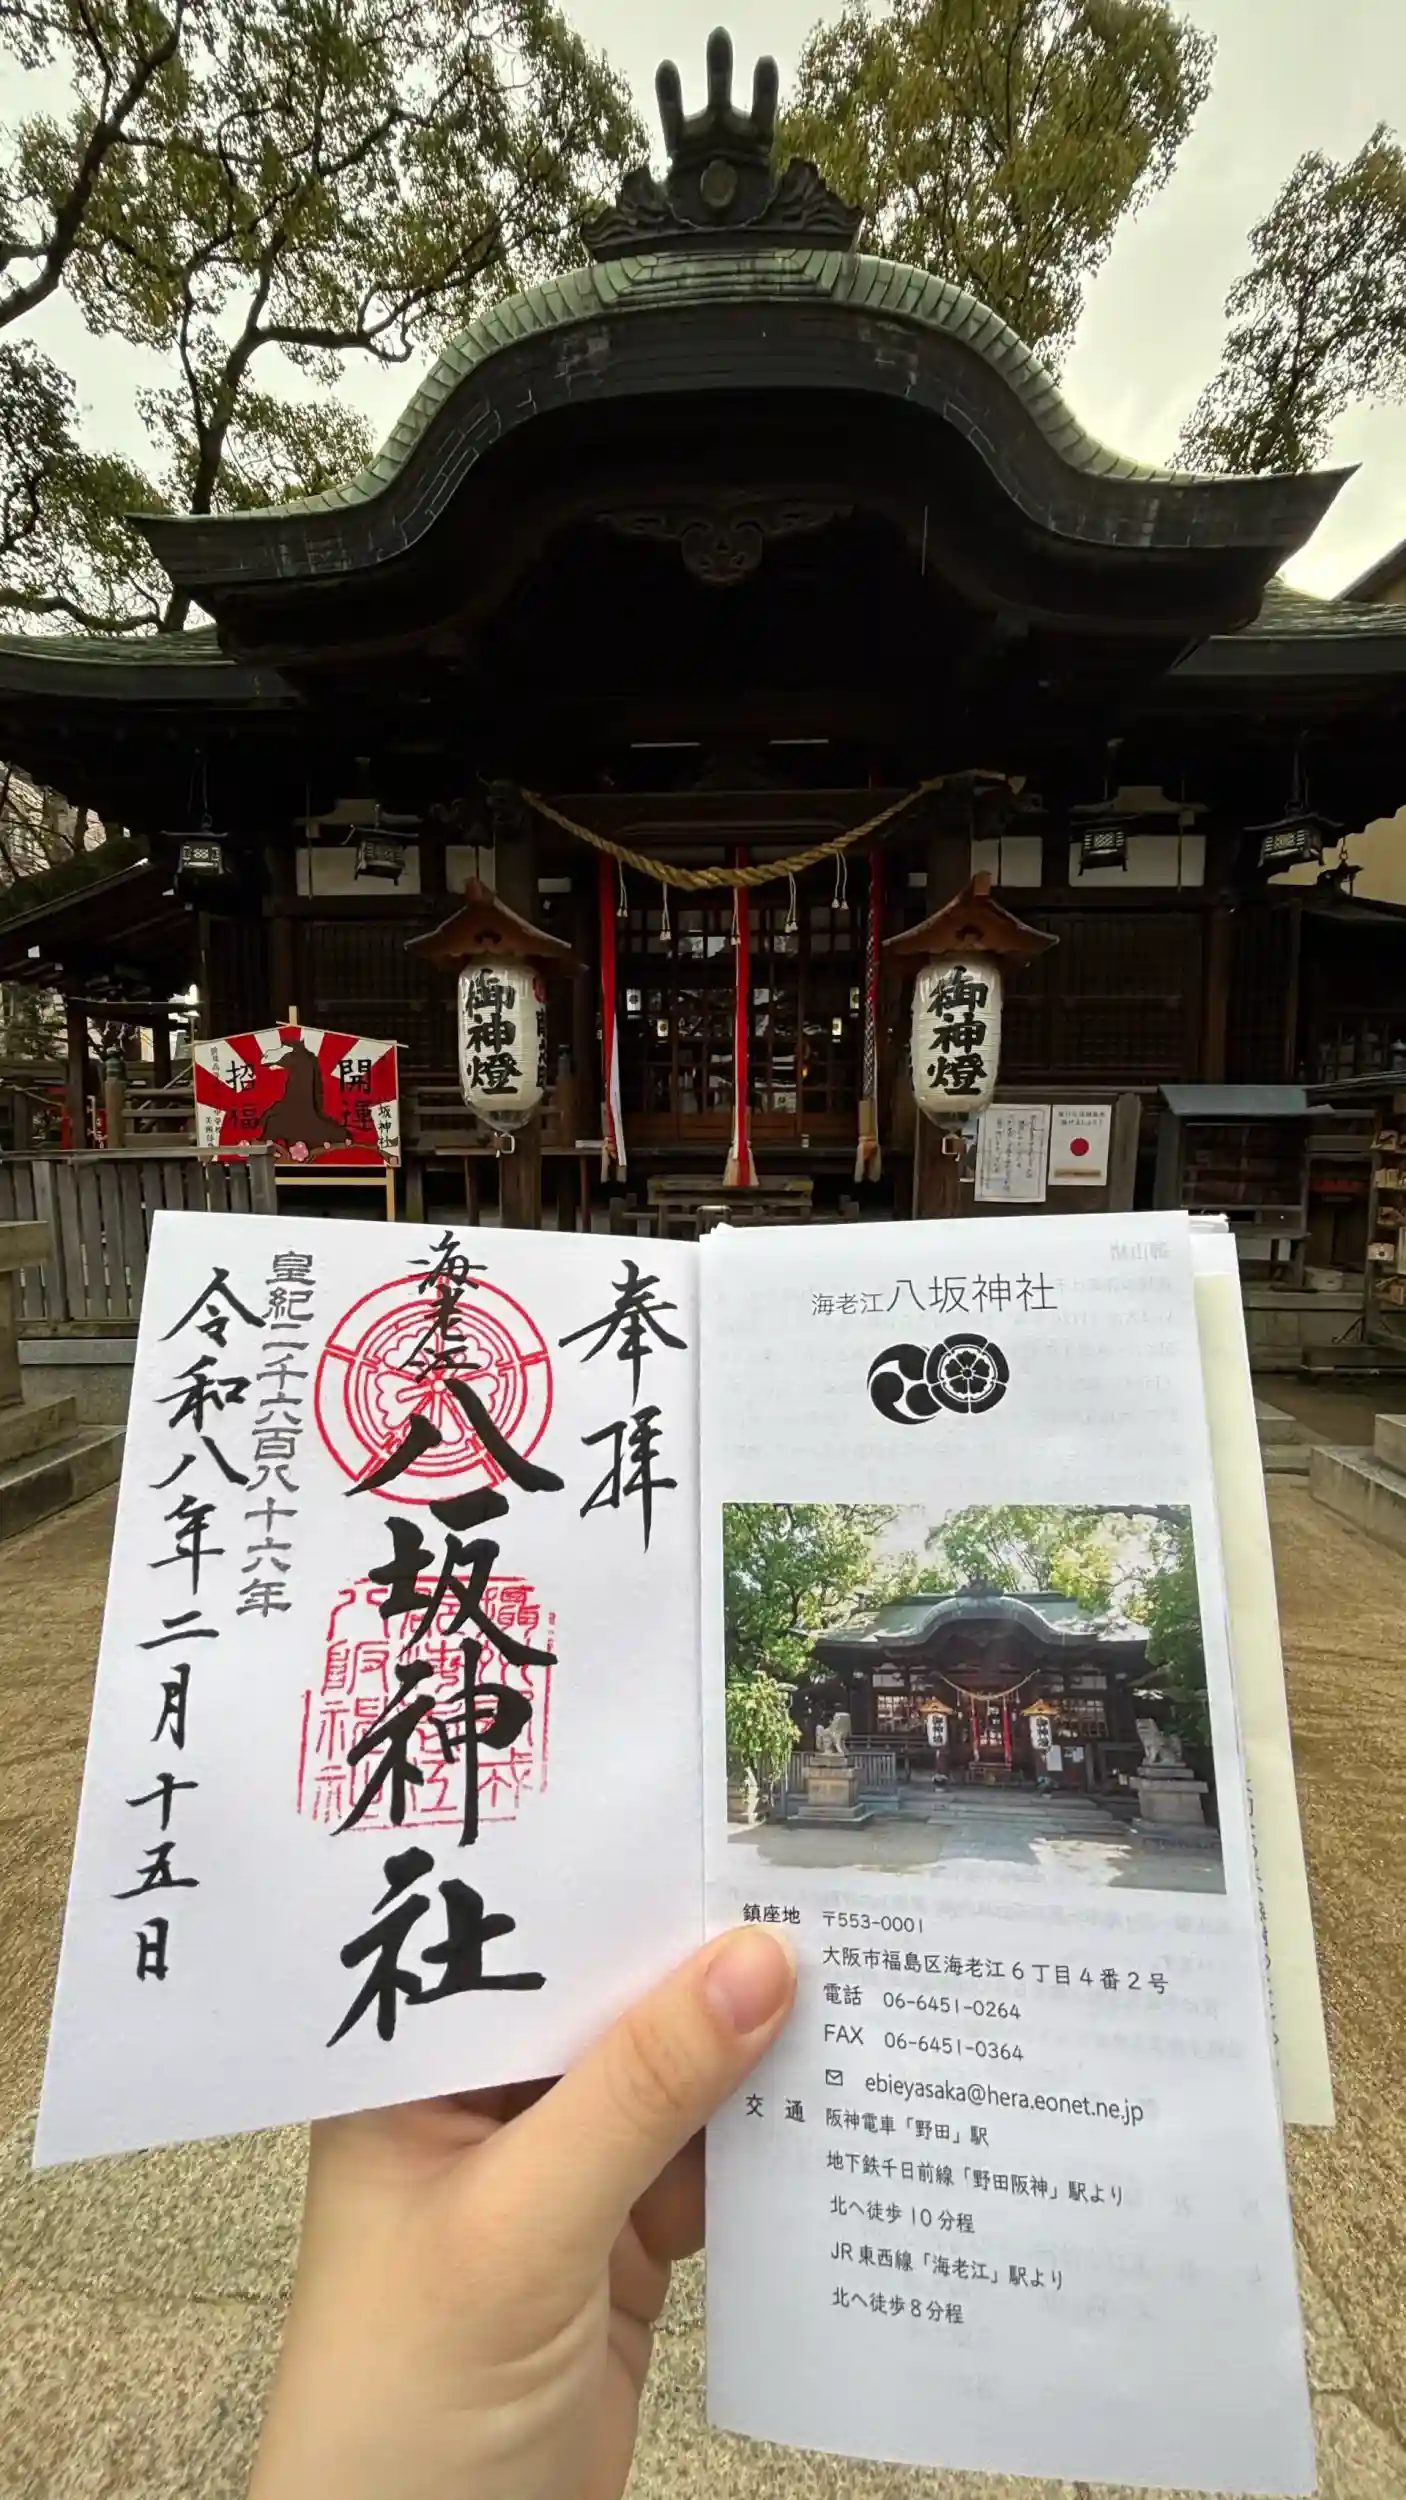 御神燈
御神燈
開運
招福
奉拝
海老江
八坂神社
皇紀二千六百八十六年
令和八年二月十五日
海老江八坂神社
鎮座地 〒553-0001
大阪市福島区海老江6丁目4番2号
電話 06-6451-0264
FAX 06-6451-0364
ebieyasaka@hera.eonet.ne.jp
交通 阪神電車「野田」駅
地下鉄千日前線「野田阪神」駅より
北へ徒歩10分程
JR東西線「海老江」駅より
北へ徒歩8分程